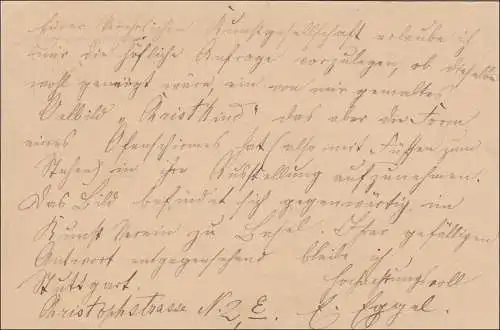 Einer verehrlichen Kunstgesellschaft erlaube ich
mir die höfliche Anfrage vorzulegen, ob dieselbe
wohl geneigt wäre, ein von mir gemaltes
Oelbild „Christkind" das aber die Form
eines Ofenschirmes hat (also mit Füssen zum
Stehen) in ihre Ausstellung aufzunehmen.
Das Bild befindet sich gegenwärtig im
Kunst Verein zu Basel. Ihrer gefälligen
Antwort entgegensehend bleibe ich
Stuttgart. hochachtungsvoll
Christophstrasse N. 2, E. E.